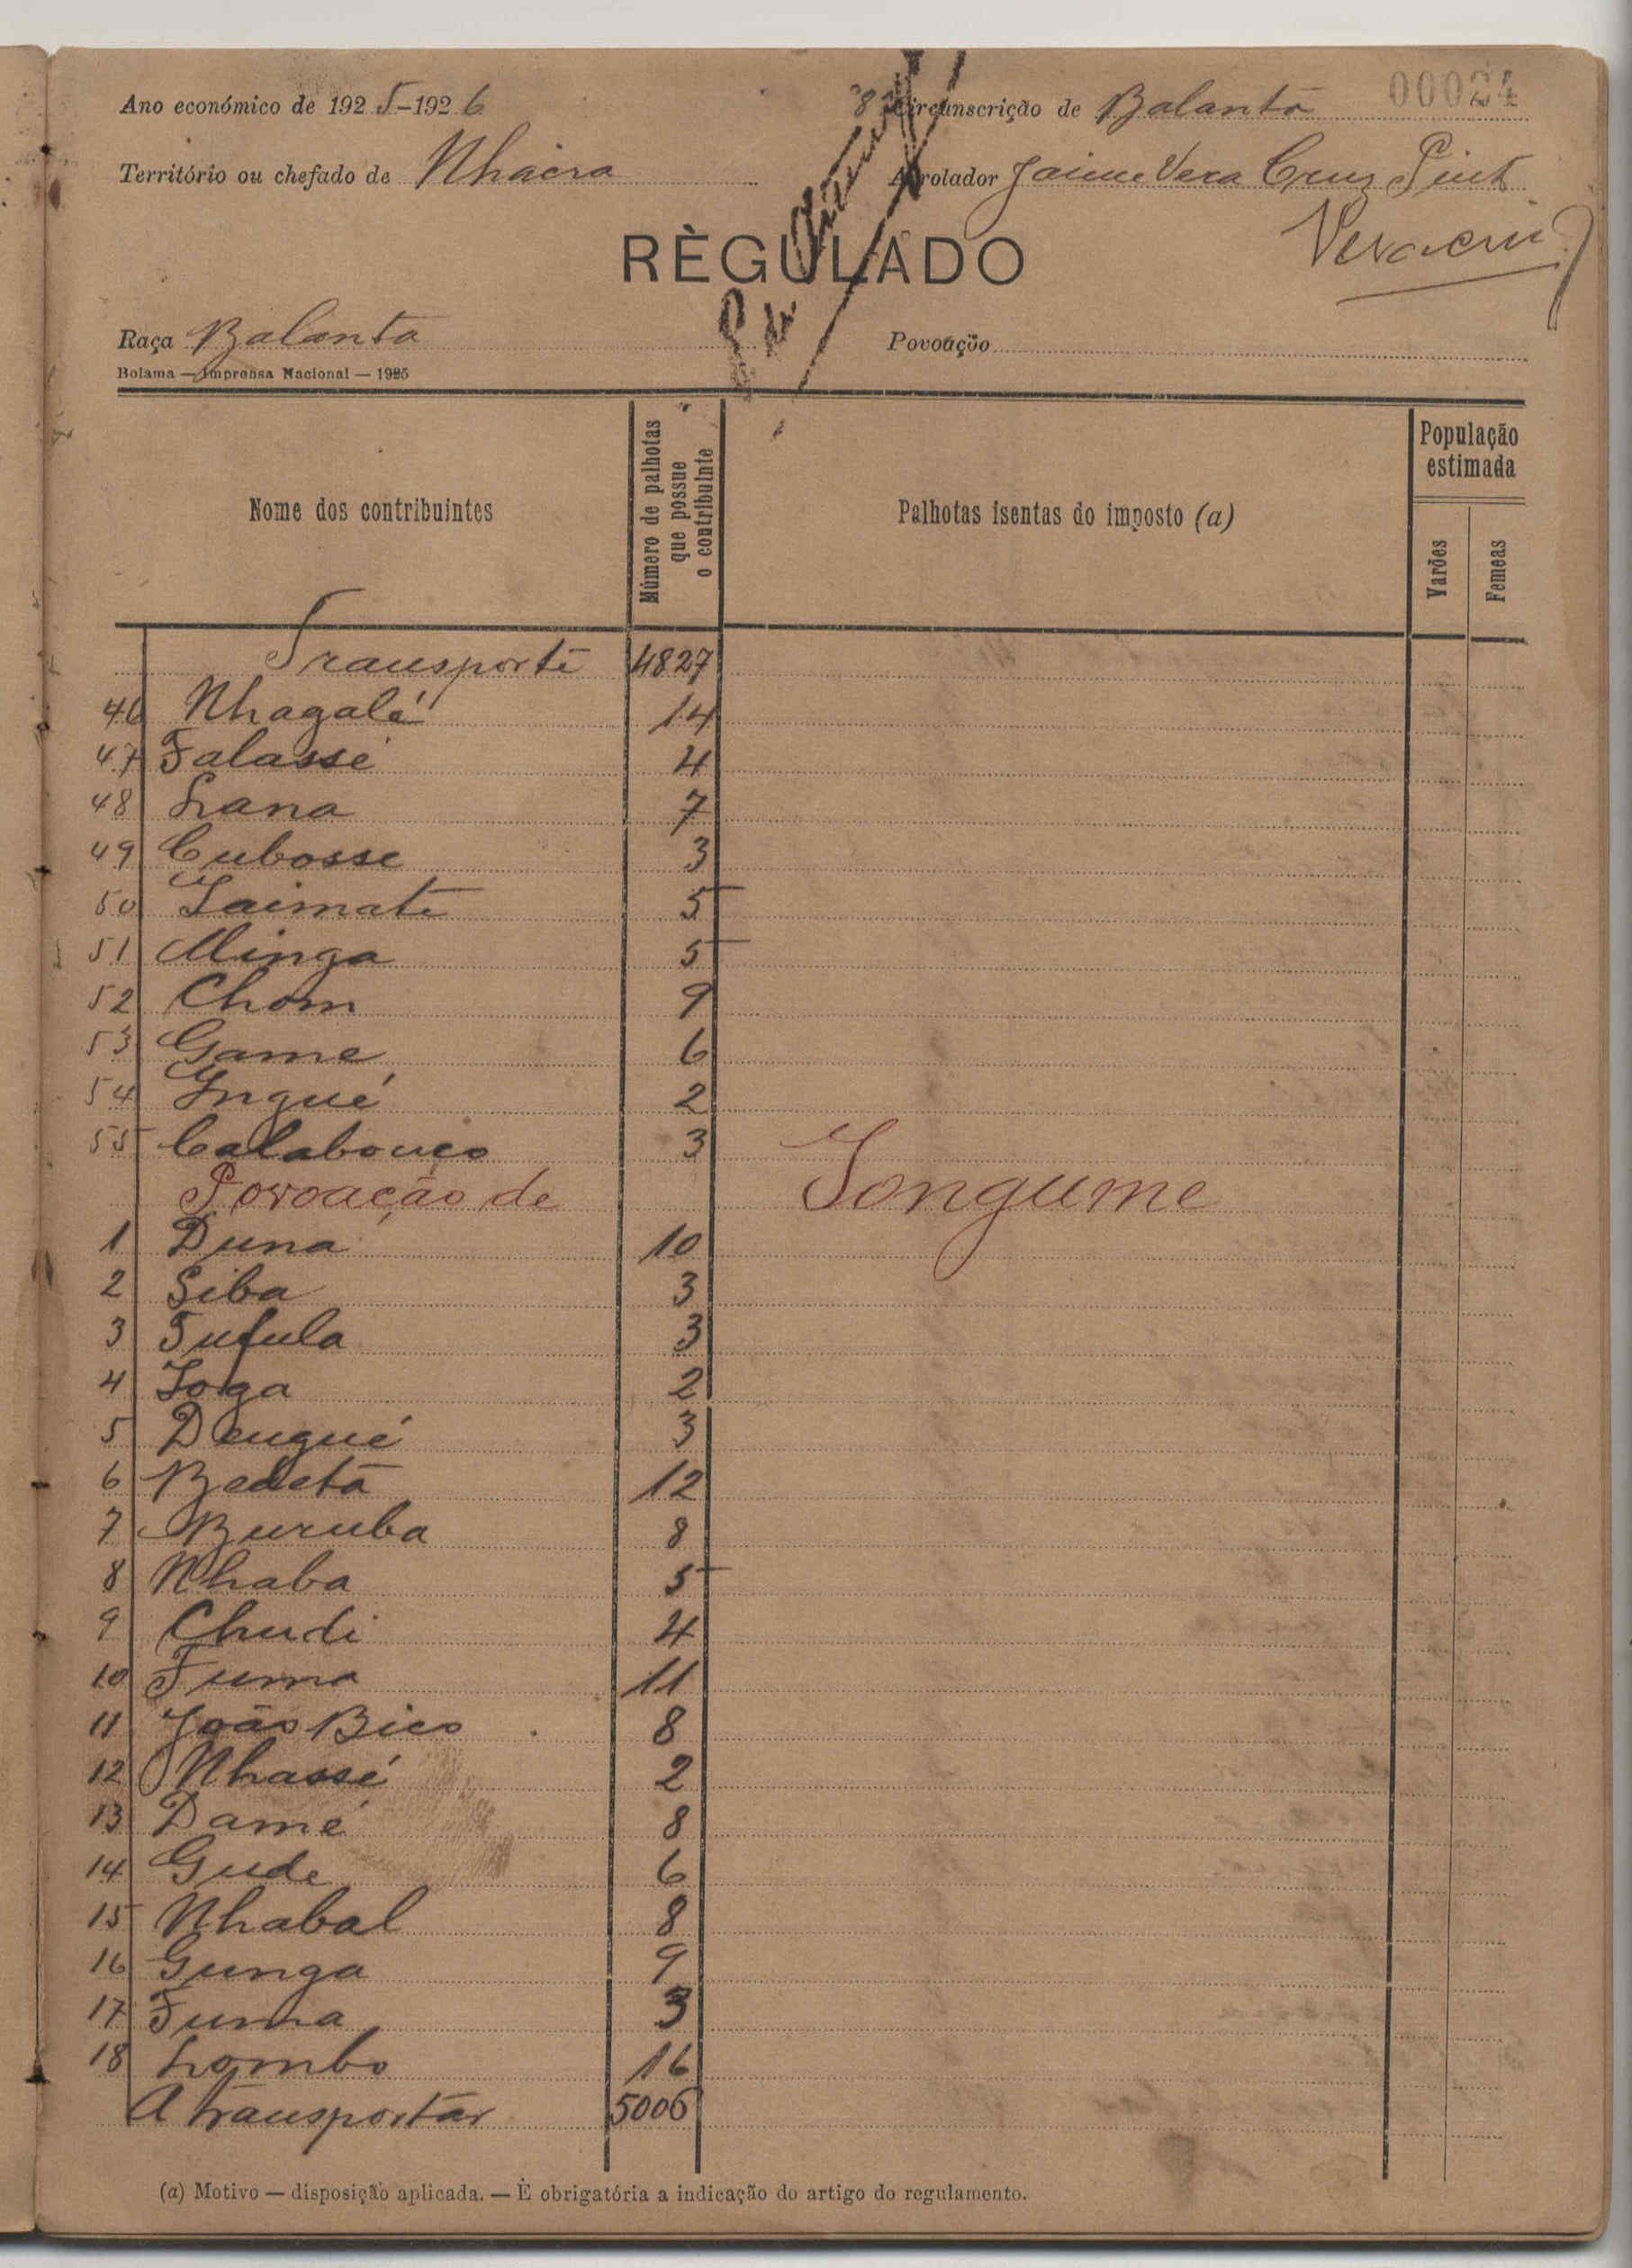 00024
Ano económico de 1925-1926
8ª Circunscrição de Balanta
Território ou chefado de Nhacra
Arrolador Jaime Vera Cruz Pint
RÈGULADO
Raça Balanta
Povoação
Bolama — Imprensa Nacional — 1925
Nome dos contribuintes
Número de palhotas que possue o contribuinte
Palhotas isentas do imposto (a)
População estimada
Varões
Femeas
Transporte 4827
46 Nhagalé 14
47 Falassé 4
48 Lana 7
49 Cubosse 3
50 Iaimate 5
51 Minga 5
52 Chom 9
53 Game 6
54 Ingué 2
55 Calabouço 3
Povoação de Songume
1 Duna 10
2 Siba 3
3 Tufula 3
4 Ioga 2
5 Dengué 3
6 Bedeta 12
7 Buruba 8
8 Nhaba 5
9 Chudi 4
10 Fuma 11
11 João Bico 8
12 Nhassé 2
13 Damé 8
14 Gude 6
15 Nhabal 8
16 Gunga 9
17 Fuma 3
18 Lombo 16
A transportar 5006
(a) Motivo — disposição aplicada. — È obrigatória a indicação do artigo do regulamento.